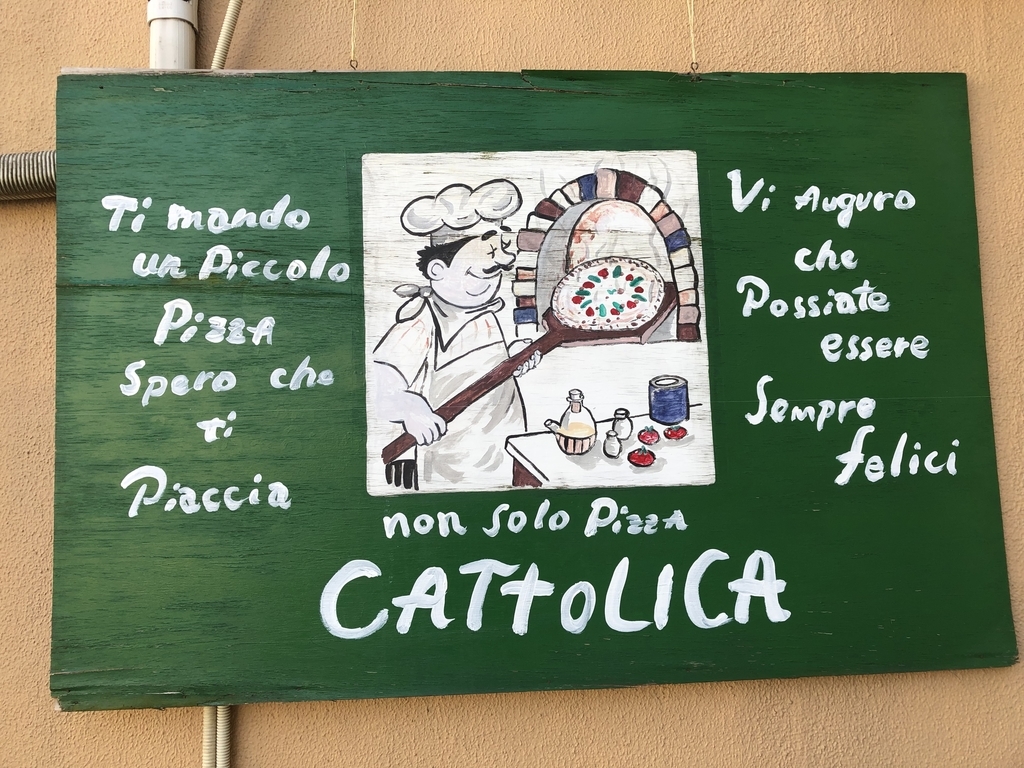 Ti mando
un Piccolo
Pizza
Spero che
ti
Piaccia
Vi Auguro
che
Possiate
essere
Sempre
felici
non solo Pizza
CATTOLICA